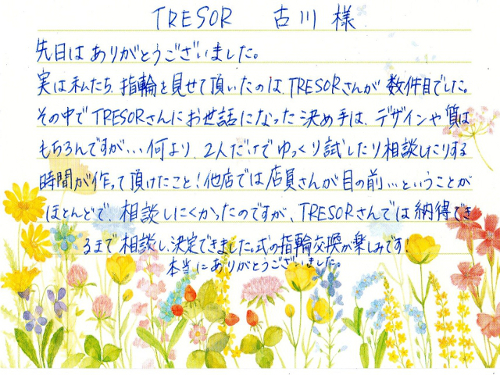 TRESOR 古川 様
先日はありがとうございました。
実は私たち、指輪を見せて頂いたのは、TRESORさんが数件目でした。
その中でTRESORさんにお世話になった決め手は、デザインや質は
もちろんですが…何より、2人だけでゆっくり試したり相談したりする
時間が作って頂けたこと!他店では店員さんが目の前…ということが
ほとんどで、相談しにくかったのですが、TRESORさんでは納得でき
るまで相談し、決定できました。式の指輪交換が楽しみです!
本当にありがとうございました。